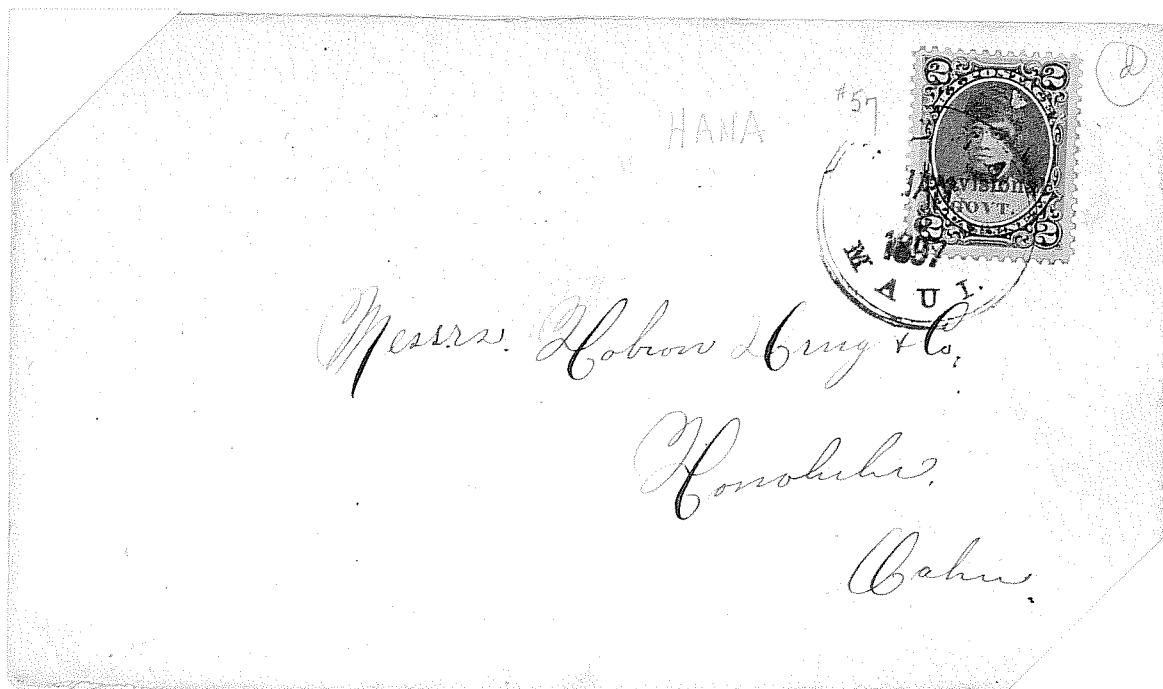 d
#57
HANA
2 2
Provisional
GOVT.
2 2
1897
MAUI.
Messrs. Hobron Drug & Co,
Honolulu.
Oahu.